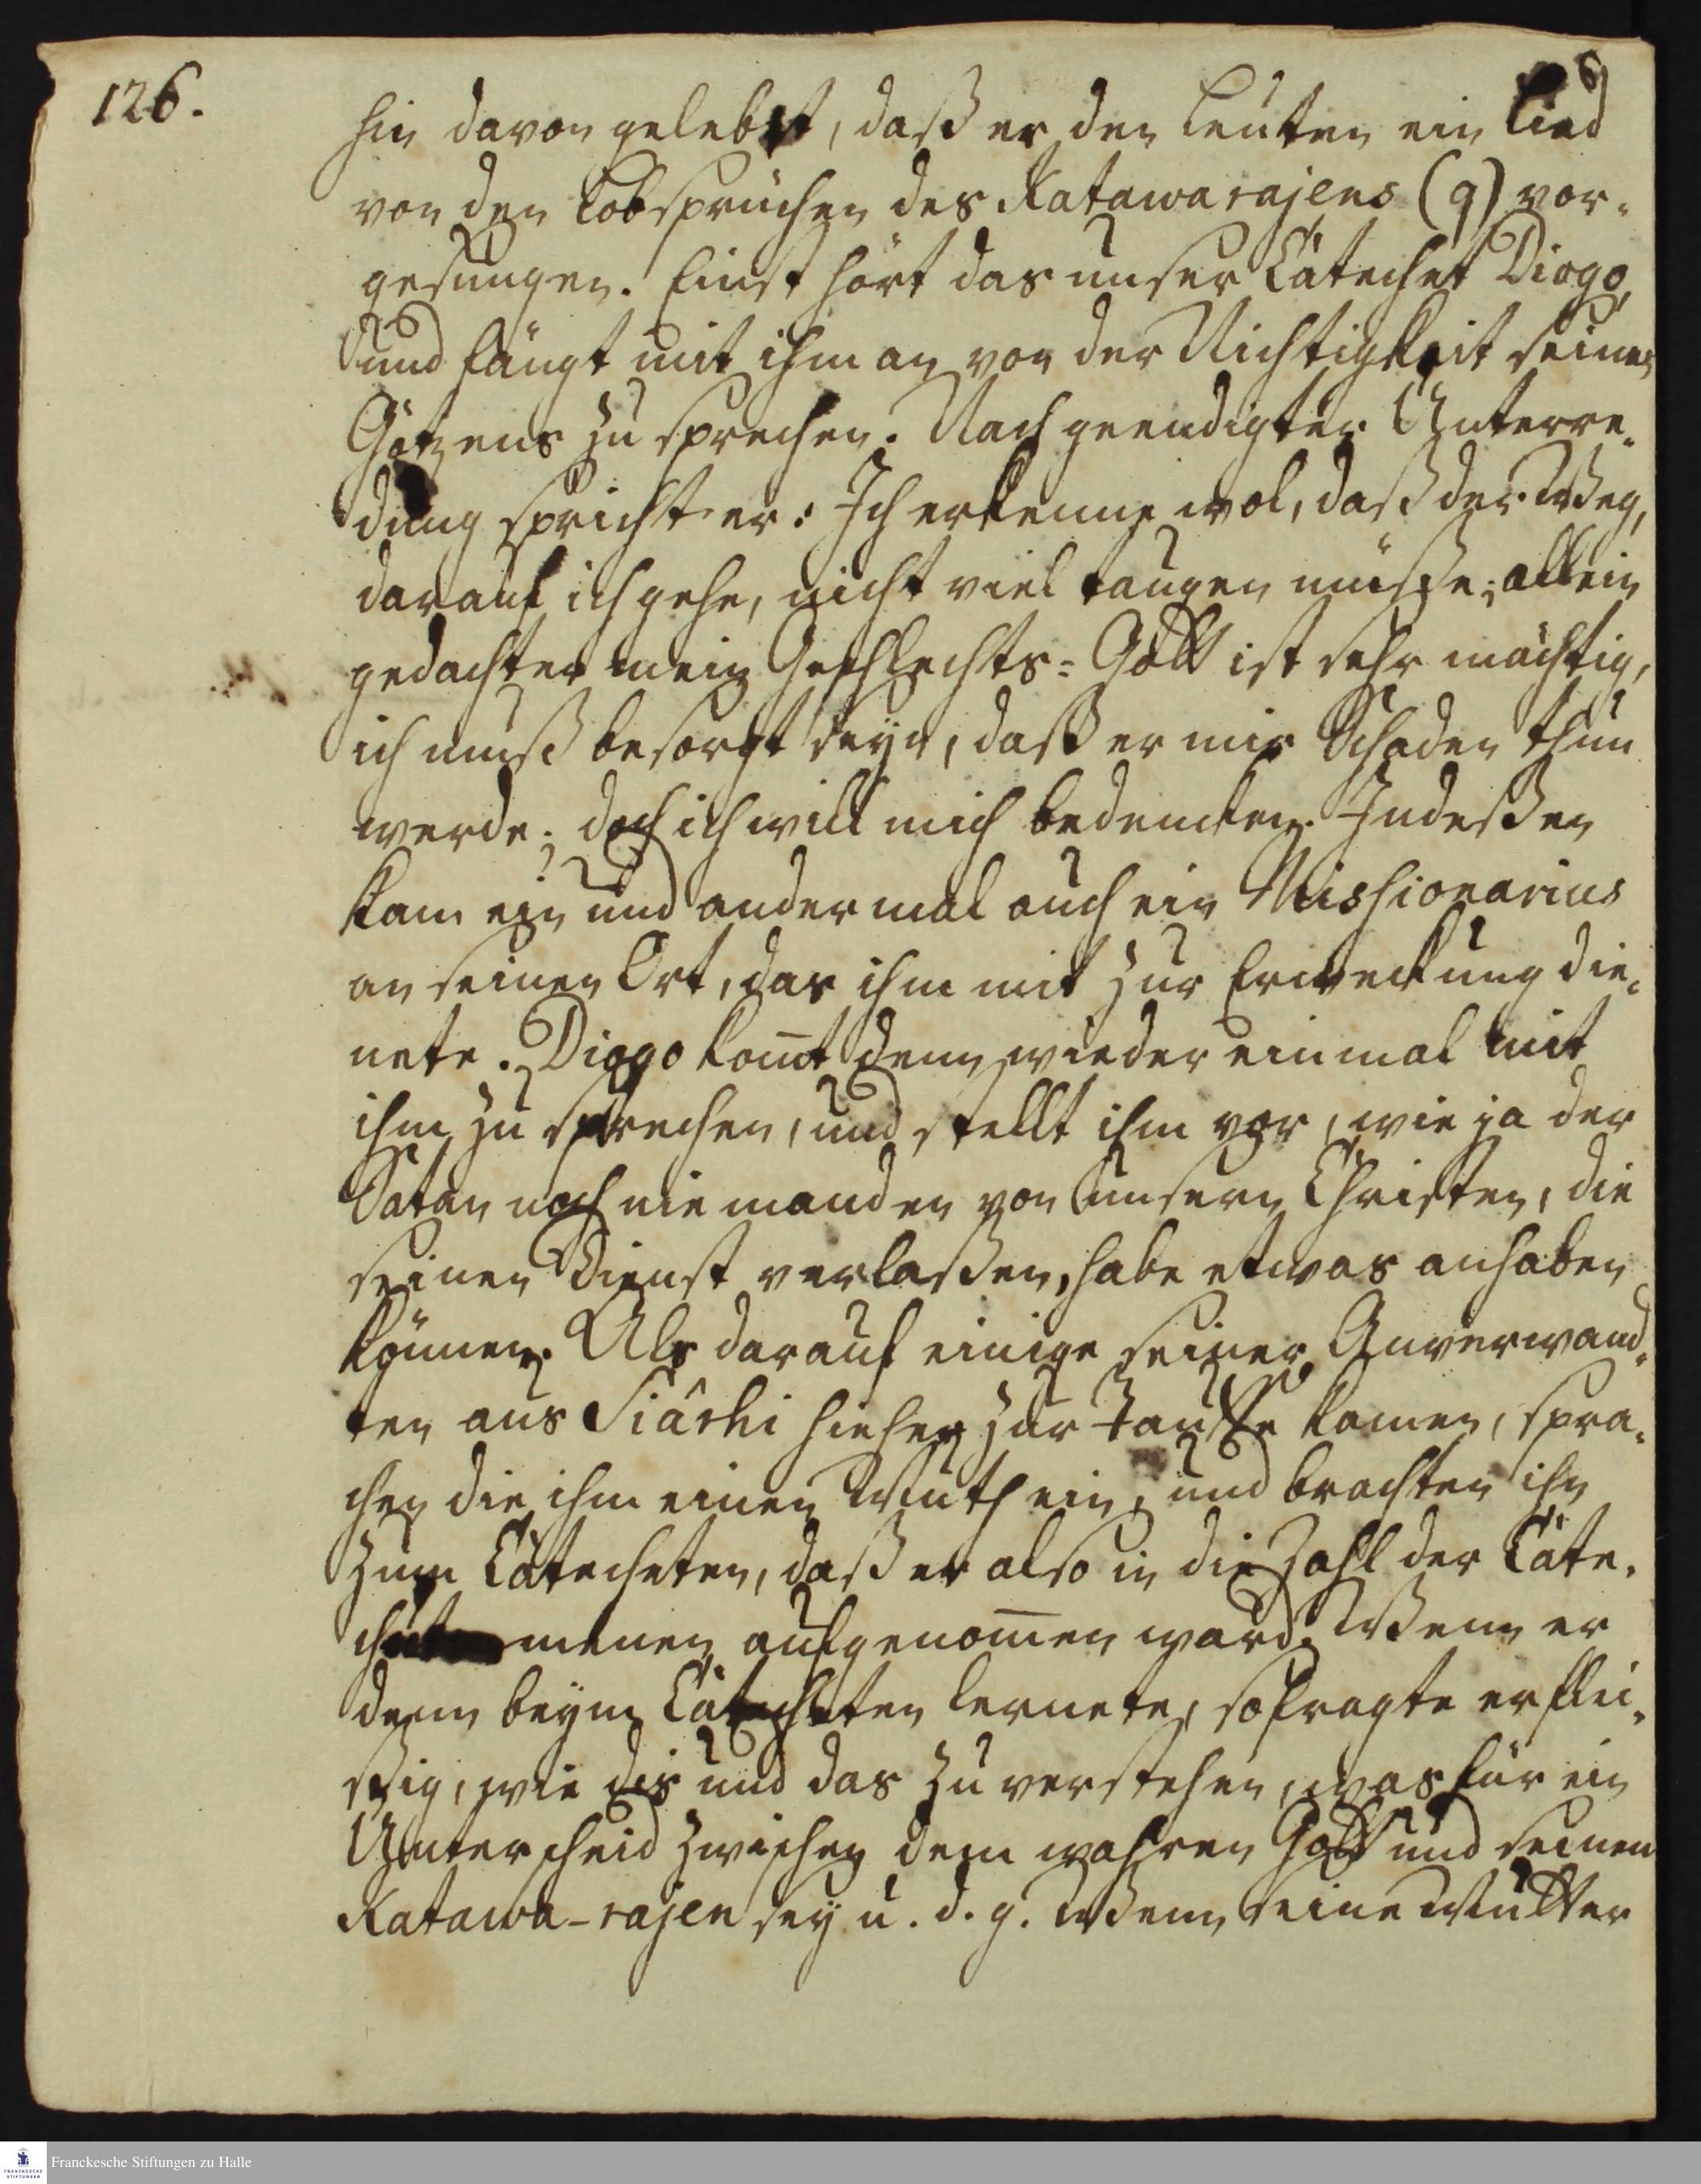 126.
hin davon gelebet, daß er den Leuten ein Lied
von den Lobsprüchen des Katawarajens (q) vor-
gesungen. Einst hört das unser Catechet Diogo,
und fängt mit ihm an von der Nichtigkeit seines
Götzens zu sprechen. Nach geendigter Unterre-
dung spricht er: Ich erkenne wol, daß der Weg,
darauf ich gehe, nicht viel taugen müsse; allein
gedachter mein Geschlechts-Gott ist sehr mächtig,
ich muß besorgt seyn, daß er mir Schaden thun
werde; doch ich will mich bedencken. Indeßen
kam ein und andermal auch ein Missionarius
an seinen Ort, das ihm mit zur Erweckung die-
nete. Diogo komt denn wieder einmal mit
ihm zu sprechen, und stellt ihm vor, wie ja der
Satan noch niemanden von unsern Christen, die
seinen Dienst verlaßen, habe etwas anhaben
können. Als darauf einige seiner Anverwand-
ten aus Siârhi hieher zur Tauffe kamen, spra-
chen die ihm einen Muth ein, und brachten ihn
zum Catecheten, daß er also in die Zahl der Cate-
chumenen aufgenommen ward. Wenn er
denn beym Catecheten lernete, so fragte er flei-
ßig, wie dis und das zu verstehen, was für ein
Unterscheid zwischen dem wahren Gott und seinen
Katawa-rajen sey u. d. g. Wenn seine Mutter
Franckesche Stiftungen zu Halle